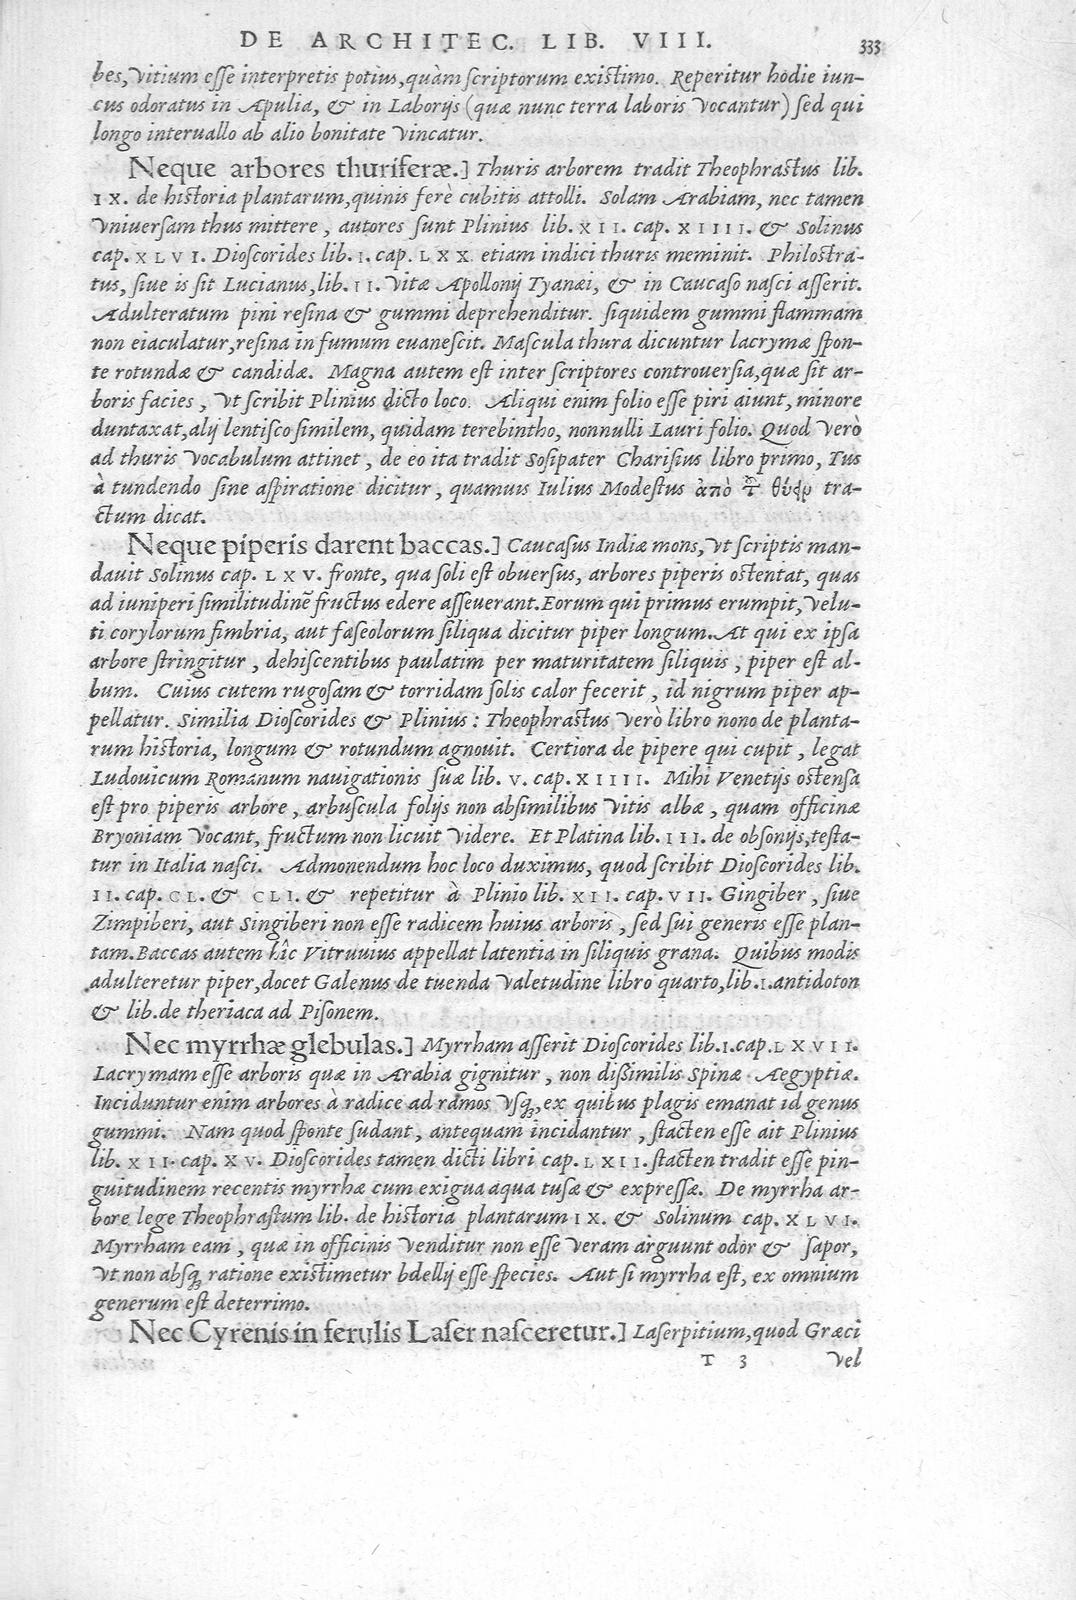 DE ARCHITEC. LIB. VIII. 333
bes, vitium esse interpretis potius, quàm scriptorum existimo. Reperitur hodie iun-
cus odoratus in Apulia, & in Laborijs (quæ nunc terra laboris vocantur) sed qui
longo interuallo ab alio bonitate vincatur.
Neque arbores thuriferæ.] Thuris arborem tradit Theophrastus lib.
IX. de historia plantarum, quinis ferè cubitis attolli. Solam Arabiam, nec tamen
vniuersam thus mittere, autores sunt Plinius lib. XII. cap. XIIII. & Solinus
cap. XLVI. Dioscorides lib. I. cap. LXX etiam indici thuris meminit. Philostra-
tus, siue is sit Lucianus, lib. II. vitæ Apollonij Tyanæi, & in Caucaso nasci asserit.
Adulteratum pini resina & gummi deprehenditur. siquidem gummi flammam
non eiaculatur, resina in fumum euanescit. Mascula thura dicuntur lacrymæ spon-
te rotundæ & candidæ. Magna autem est inter scriptores controuersia, quæ sit ar-
boris facies, vt scribit Plinius dicto loco. Aliqui enim folio esse piri aiunt, minore
duntaxat, alij lentisco similem, quidam terebintho, nonnulli Lauri folio. Quod verò
ad thuris vocabulum attinet, de eo ita tradit Sosipater Charisius libro primo, Tus
à tundendo sine aspiratione dicitur, quamuis Iulius Modestus ἀπὸ τοῦ θύειν tra-
ctum dicat.
Neque piperis darent baccas.] Caucasus Indiæ mons, vt scriptis man-
dauit Solinus cap. LXV. fronte, qua soli est obuersus, arbores piperis ostentat, quas
ad iuniperi similitudinē fructus edere asseuerant. Eorum qui primus erumpit, velu-
ti corylorum fimbria, aut faseolorum siliqua dicitur piper longum. At qui ex ipsa
arbore stringitur, dehiscentibus paulatim per maturitatem siliquis, piper est al-
bum. Cuius cutem rugosam & torridam solis calor fecerit, id nigrum piper ap-
pellatur. Similia Dioscorides & Plinius: Theophrastus verò libro nono de planta-
rum historia, longum & rotundum agnouit. Certiora de pipere qui cupit, legat
Ludouicum Romanum nauigationis suæ lib. V. cap. XIIII. Mihi Venetijs ostensa
est pro piperis arbore, arbuscula folijs non absimilibus vitis albæ, quam officinæ
Bryoniam vocant, fructum non licuit videre. Et Platina lib. III. de obsonijs, testa-
tur in Italia nasci. Admonendum hoc loco duximus, quod scribit Dioscorides lib.
II. cap. CL. & CLI. & repetitur à Plinio lib. XII. cap. VII. Gingiber, siue
Zimpiberi, aut Singiberi non esse radicem huius arboris, sed sui generis esse plan-
tam. Baccas autem hîc Vitruuius appellat latentia in siliquis grana. Quibus modis
adulteretur piper, docet Galenus de tuenda valetudine libro quarto, lib. I. antidoton
& lib. de theriaca ad Pisonem.
Nec myrrhæ glebulas.] Myrrham asserit Dioscorides lib. I. cap. LXVII.
Lacrymam esse arboris quæ in Arabia gignitur, non dissimilis Spinæ Aegyptiæ.
Inciduntur enim arbores à radice ad ramos vsq;, ex quibus plagis emanat id genus
gummi. Nam quod sponte sudant, antequam incidantur, stacten esse ait Plinius
lib. XII. cap. XV. Dioscorides tamen dicti libri cap. LXII. stacten tradit esse pin-
guitudinem recentis myrrhæ cum exigua aqua tusæ & expressæ. De myrrha ar-
bore lege Theophrastum lib. de historia plantarum IX. & Solinum cap. XLVI.
Myrrham eam, quæ in officinis venditur non esse veram arguunt odor & sapor,
vt non absq; ratione existimetur bdellij esse species. Aut si myrrha est, ex omnium
generum est deterrimo.
Nec Cyrenis in ferulis Laser nasceretur.] Laserpitium, quod Græci
T 3 vel